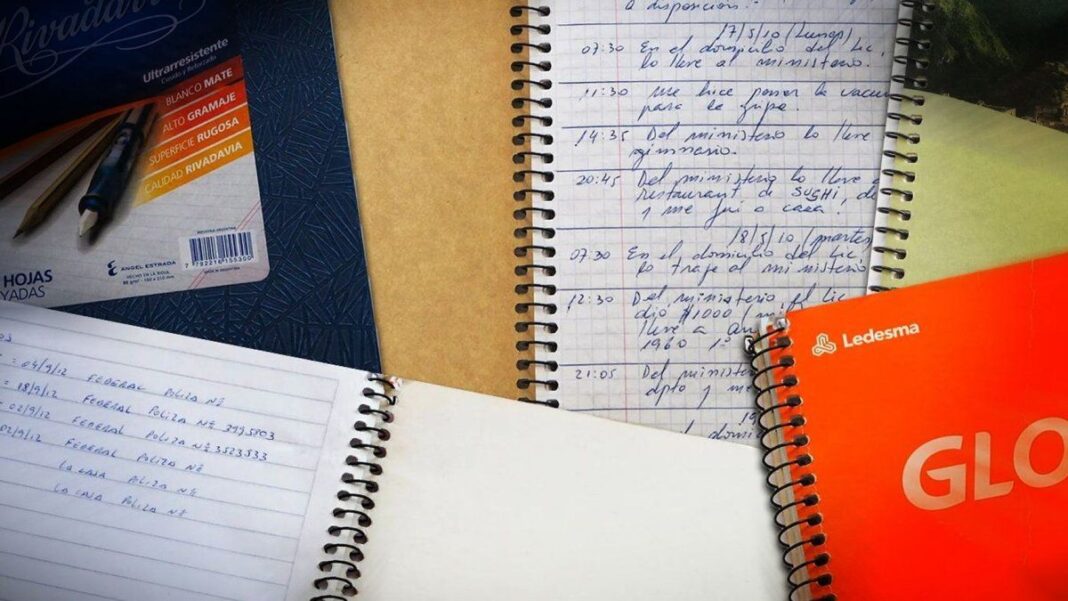 Rivadavia
Ultrarresistente
Cosido y Reforzado
BLANCO MATE
ALTO GRAMAJE
SUPERFICIE RUGOSA
CALIDAD RIVADAVIA
INDUSTRIA ARGENTINA
ANGEL ESTRADA
HECHO EN LA RIOJA
7 792216 155300
HOJAS
YADAS
a disposición.
17/5/10 (Lunes)
07:30 En el domicilio del Lic,
lo lleve al ministerio.
11:30 me hice poner la vacu
para la gripe.
14:35 Del ministerio lo lleve
gimnasio.
20:45 Del ministerio lo lleve
restaurant de SUSHI, de
y me fui a casa.
18/5/10 (martes
07:30 En el domicilio del Lic,
lo traje al ministerio
12:30 Del ministerio, el Lic
dió $1000 /
lleve a
1960 1º
21:05 Del minist
dpto y me
19
domi
Ledesma
GLO
= 04/9/12 FEDERAL POLIZA Nº
= 08/9/12 FEDERAL POLIZA Nº 3995803
= 02/9/12 FEDERAL POLIZA Nº 3523533
02/9/12 FEDERAL POLIZA Nº
LA CAJA POLIZA Nº
LA CAJA POLIZA Nº